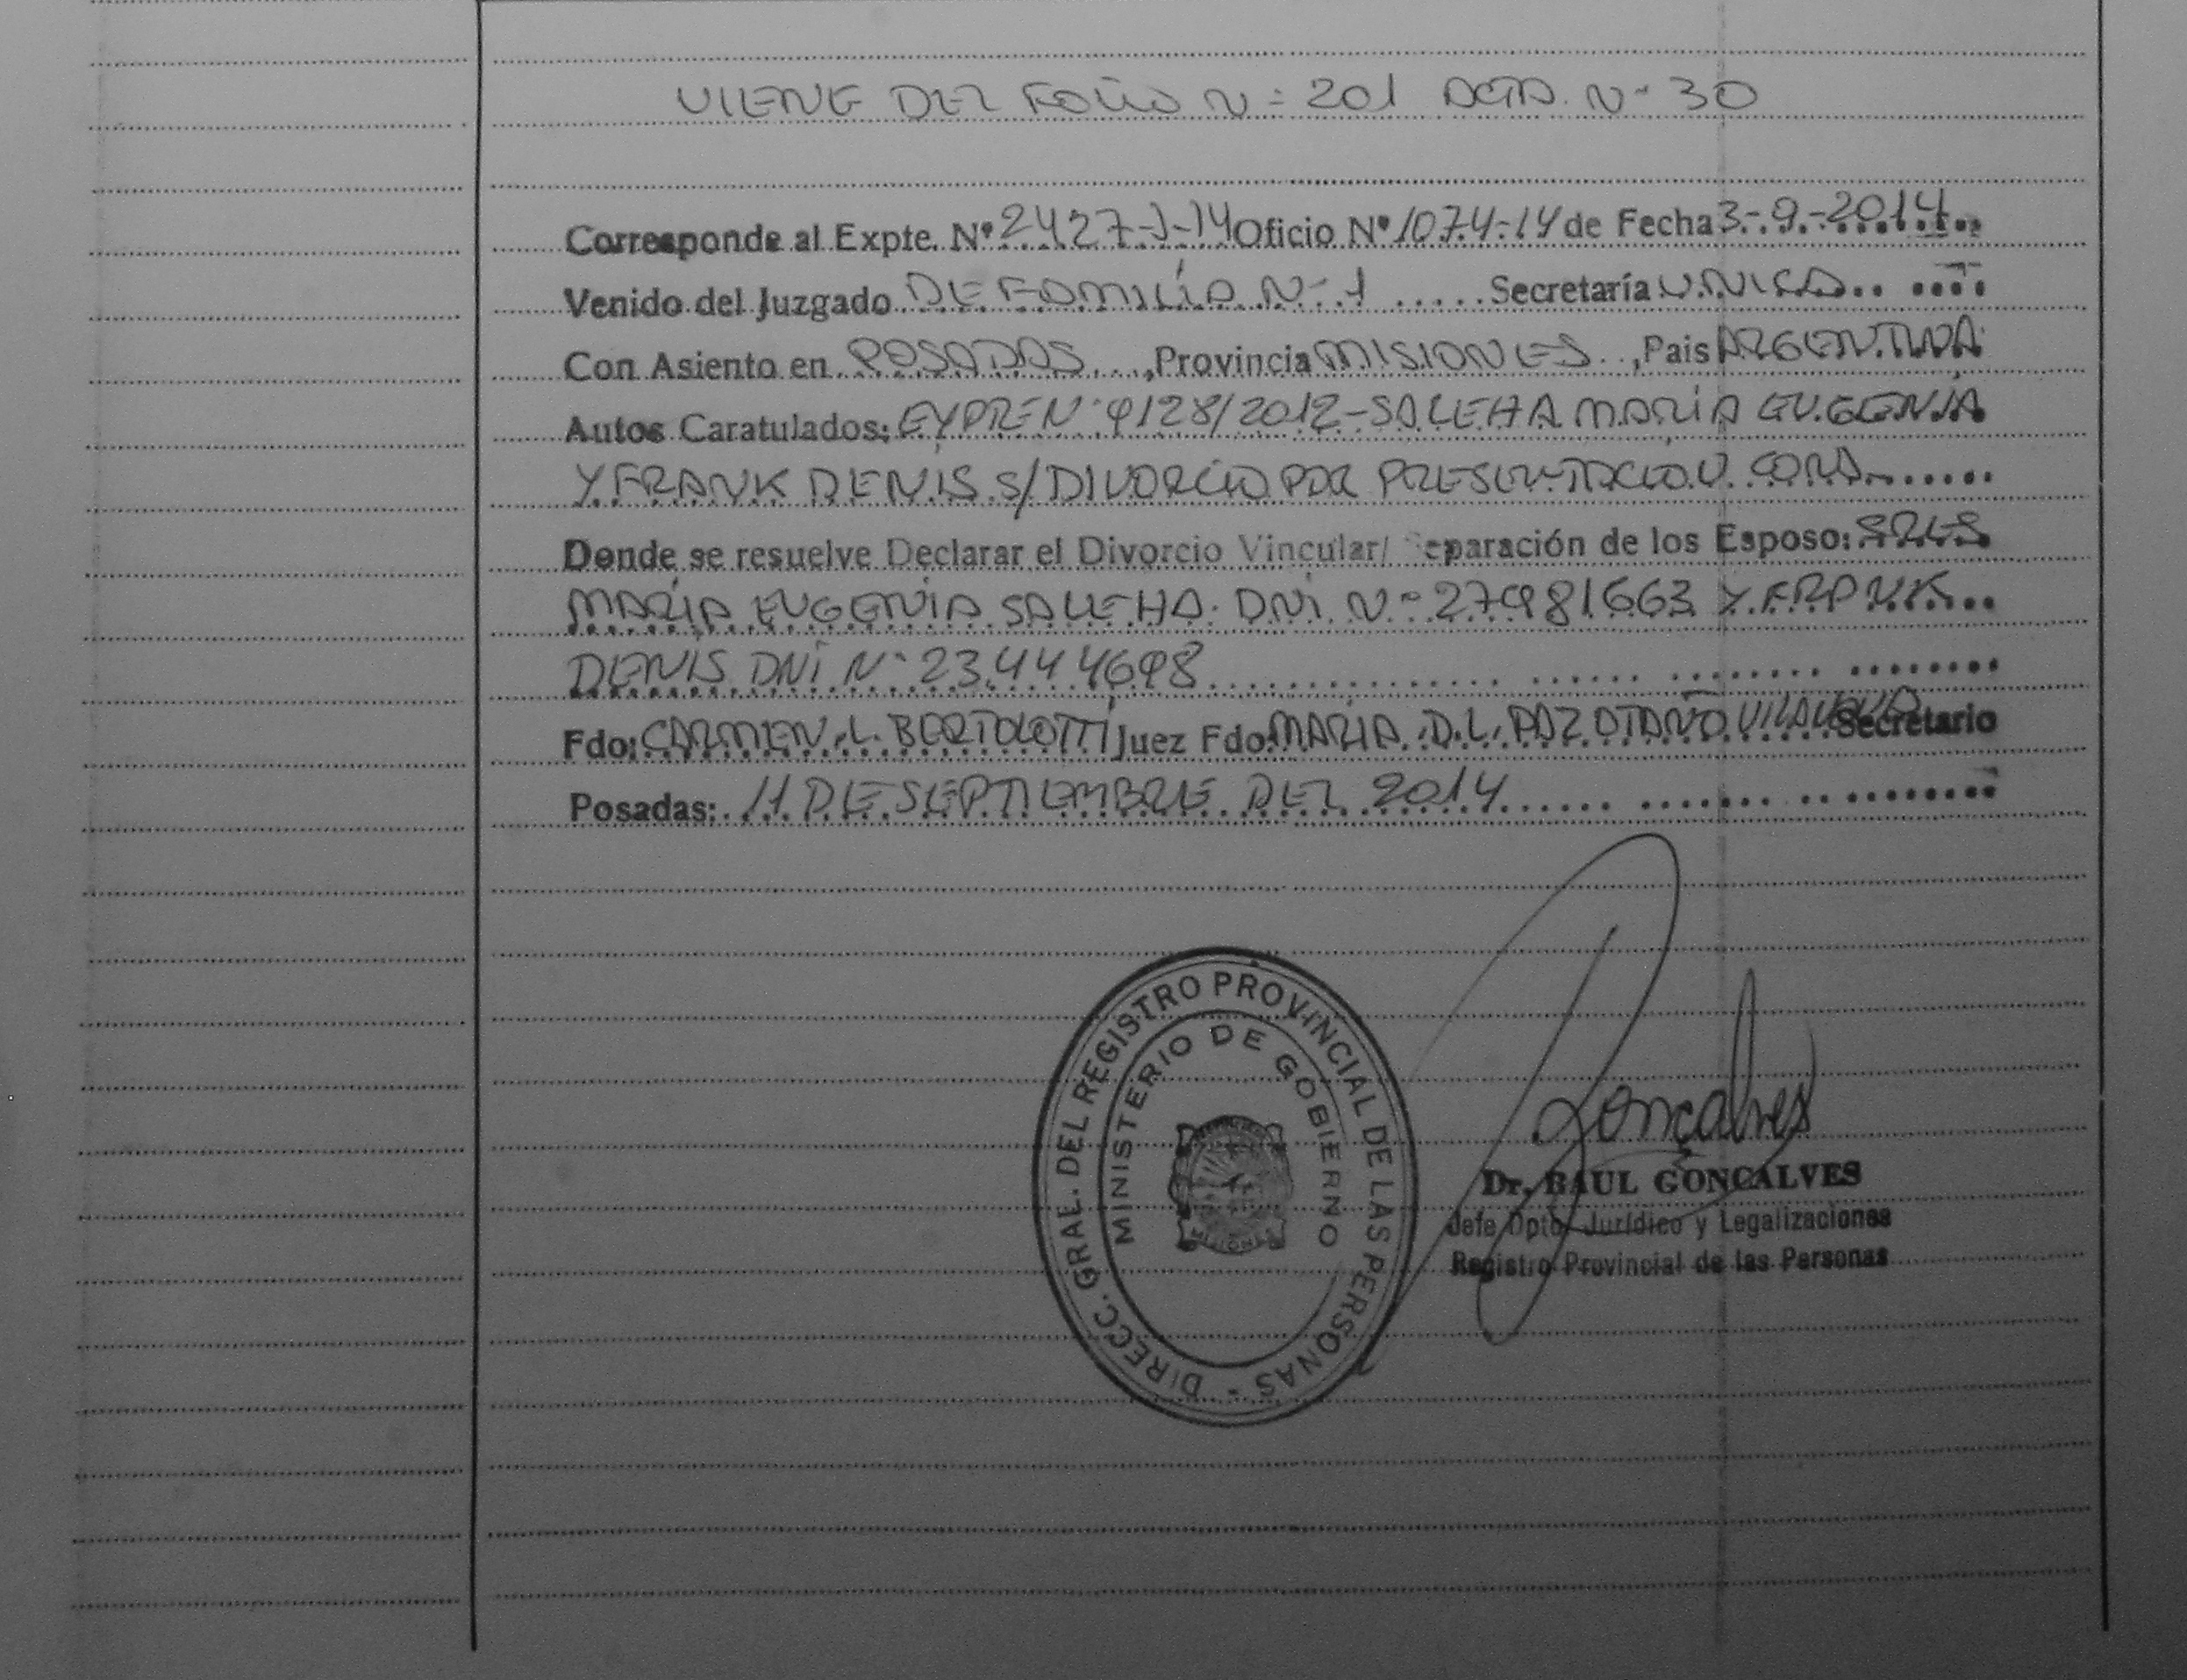 VIENE DEL FOLIO N= 201 ACTA. Nº 30
Corresponde al Expte. Nº 2427-J-14 Oficio Nº 1074-14 de Fecha 3-9-2014
Venido del Juzgado DE FAMILIA N-1 Secretaría UNICA
Con Asiento en POSADAS, Provincia MISIONES, Pais ARGENTINA
Autos Caratulados: EXPTE Nº 9128/2012-SALEHA MARÍA EUGENIA
Y FRANK DENIS S/DIVORCIO POR PRESENTACION CONJ.
Donde se resuelve Declarar el Divorcio Vincular/ Separación de los Esposo: SRES
MARÍA EUGENIA SALEHA. DNI Nº 27981663 Y FRANK
DENIS DNI Nº 23.444698
Fdo: CARMEN.L. BERTOLOTTI Juez Fdo: MARÍA.D.L. PAZ OTAÑO Secretario
Posadas: 11 DE SEPTIEMBRE DEL 2014
DIRECC. GRAL. DEL REGISTRO PROVINCIAL DE LAS PERSONAS -
MINISTERIO DE GOBIERNO
MISIONES
Goncalves
Dr. RAUL GONCALVES
Jefe Dpto. Jurídico y Legalizaciones
Registro Provincial de las Personas